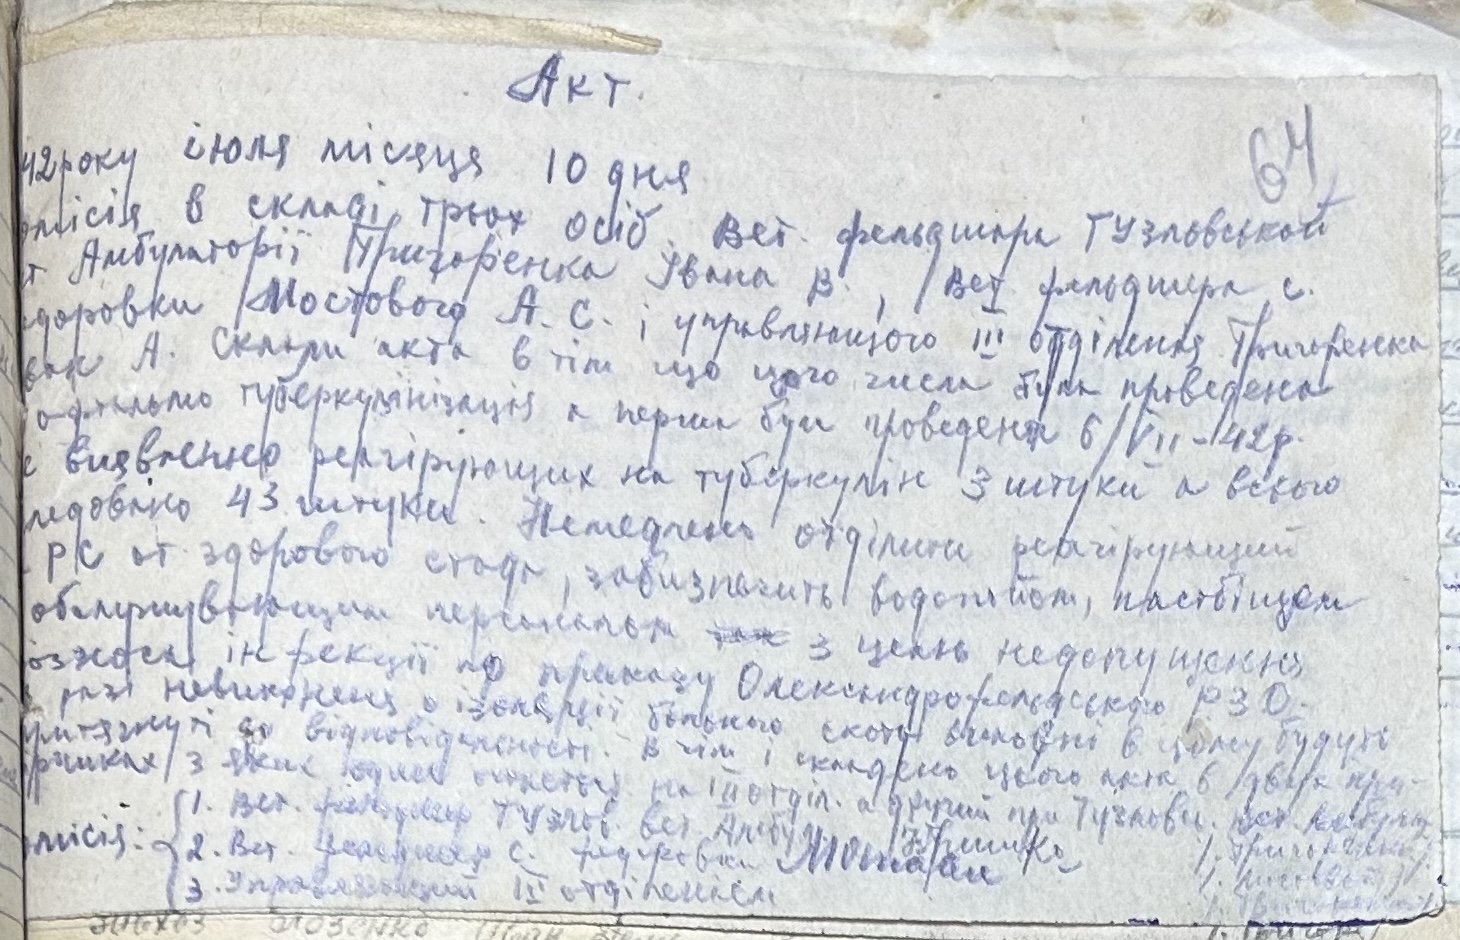 Акт.
64
42 року іюля місяця 10 дня
омісія в складі трьох осіб. Вет. фельдшера Тузловської
т Амбулаторії Григоренка Івана В., Вет. фельдшера с.
доровки Мостового А. С. і управляющого III отділення Григоренка
А. Склали акта в тім що цього числа була проведена
туберкулінізація а перша був проведена 6/VII-42р.
виявленно реагірующих на туберкулін 3 штуки а всього
ледовано 43 штуки. Немедлено отділити реагірующий
РС от здорового стада, забизпечить водопойом, пастбіщем
обслужувающим персоналом з целлю недопущення
інфекції по приказу Олександрофельдського РЗО.
разі невиконеня о ізоляції больного скота виновні в цьому будуть
притягнуті до відповідальності. В чім і складено цього акта в двух при-
з яких один остається на III отділ. а другий при Тузловс. вет. Амбула
місія: 1. Вет. фельдшер Тузлов. вет. Амбу /Григоренко/
2. Вет. фельдшер с. Федоровки /Мостовой/
3. Управляющий III отділенієм